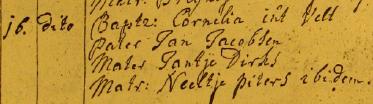 16. dito Baptz: Cornelia int Velt
Pater Jan Jacobsen
Mater Jantje Dirks
Matr: Neeltje piters ibidem.